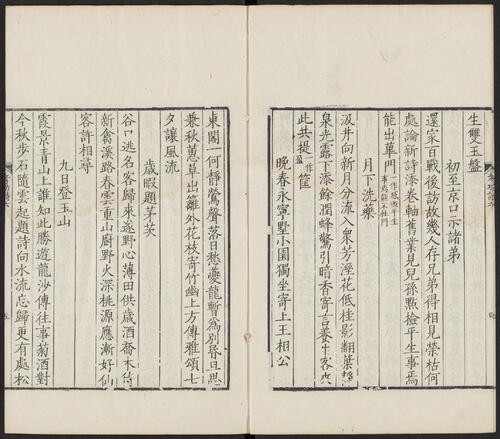 生雙玉盤
初至京口示諸弟
還家百戰後訪故幾人存兄弟得相見榮枯何
處論新詩添卷軸舊業見兒孫點撿平生事焉
能出蓽門
月下洗藥
汲井向新月分流入衆芳溼花低桂影翻葉
泉光露下添餘潤蜂驚引暗香寄言養生客
此共提筐一作盈
晚春永寧墅小園獨坐寄上王相公
東閣一何靜鶯聲落日愁夔龍暫爲别昏旦思
兼秋蕙草出籬外花枝寄竹幽上方傳雅頌七
夕讓風流
歲暇題茅茨
谷口逃名客歸來遂野心薄田供歲酒喬木待
新禽溪路春雲重山廚野火深桃源應漸好仙
客許相尋
九日登玉山
霞景青山上誰知此勝遊龍沙傳往事菊酒對
今秋步石隨雲起題詩向水流忘歸更有處松